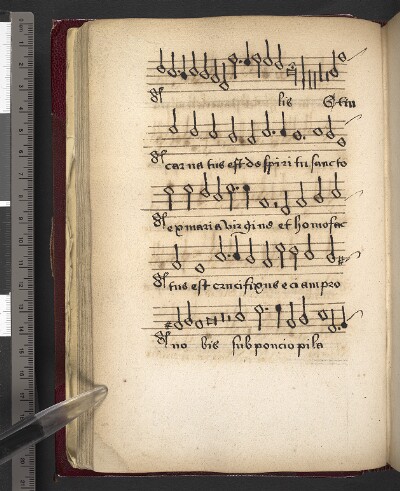 lis Et in
carnatus est de spiritu sancto
ex maria virgine et homo fac
tus est crucifixus eciam pro
no bis sub poncio pila